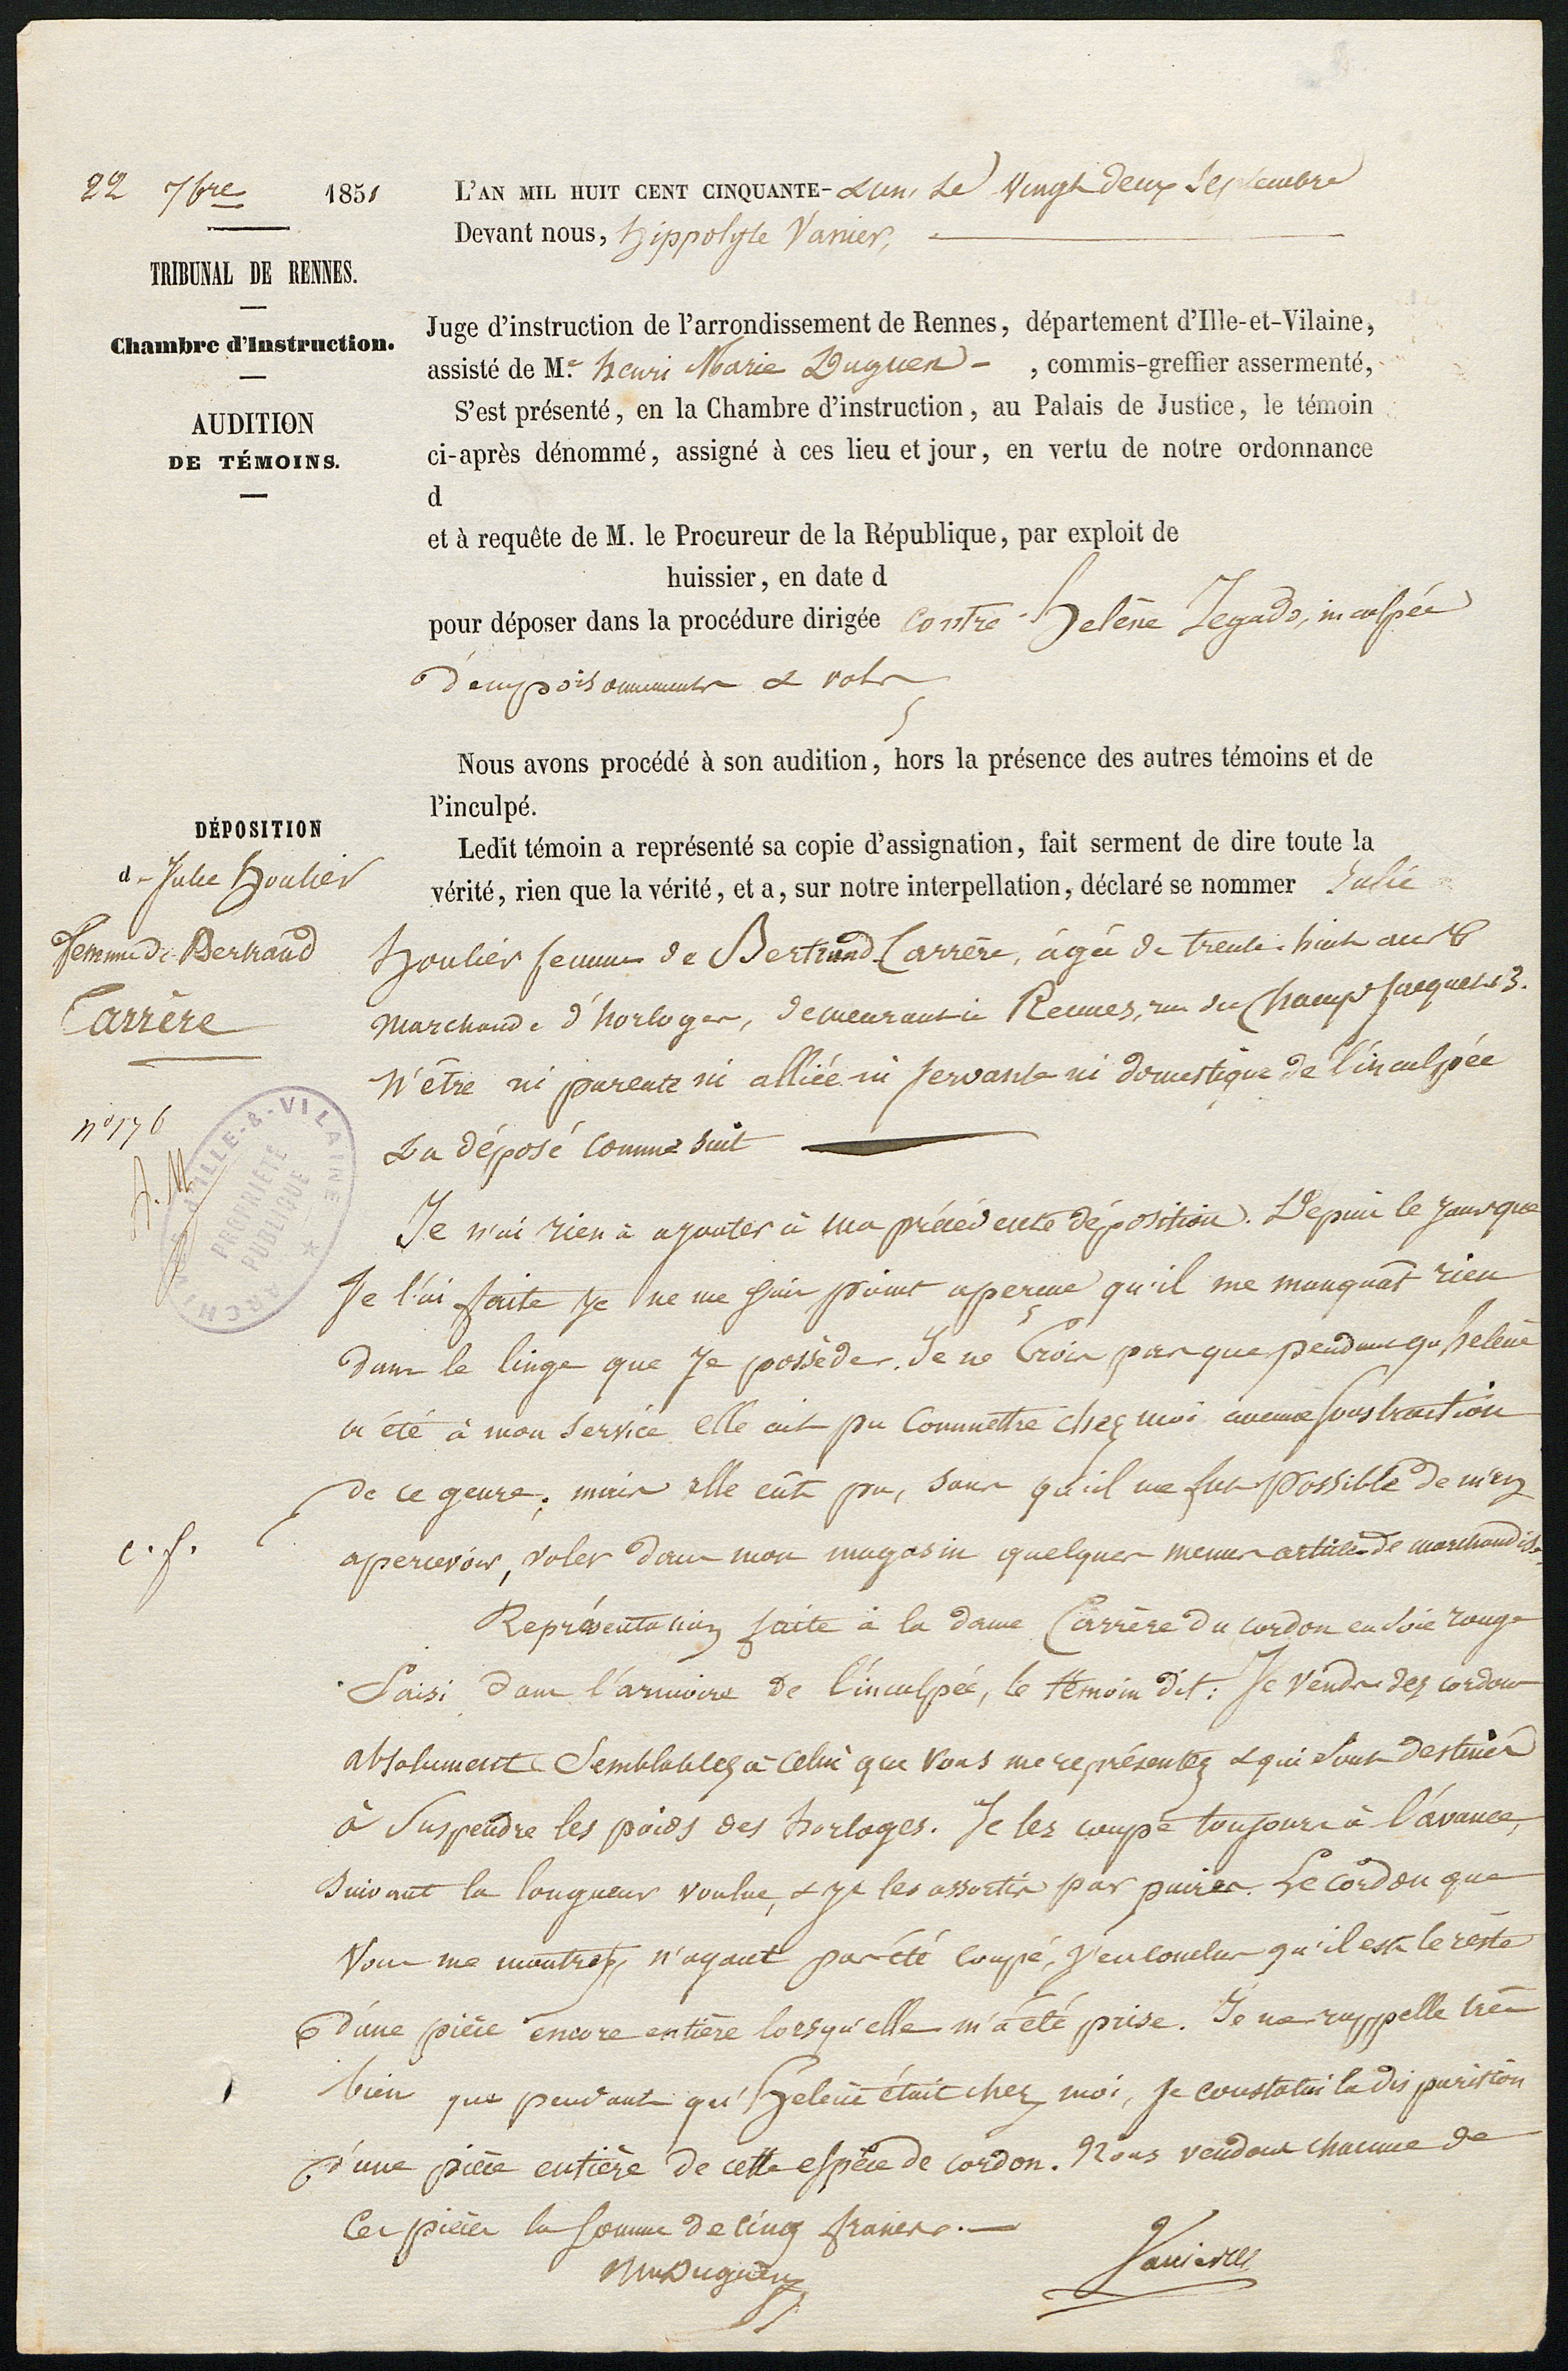 22 7bre 1851
TRIBUNAL DE RENNES.
Chambre d'Instruction.
AUDITION
DE TÉMOINS.
L'AN MIL HUIT CENT CINQUANTE-& un, le vingt deux Septembre
Devant nous, hippolyte Vanier,
Juge d'instruction de l'arrondissement de Rennes, département d'Ille-et-Vilaine,
assisté de Me henri Marie Duguen - , commis-greffier assermenté,
S'est présenté, en la Chambre d'instruction, au Palais de Justice, le témoin
ci-après dénommé, assigné à ces lieu et jour, en vertu de notre ordonnance
d
et à requête de M. le Procureur de la République, par exploit de
huissier, en date d
pour déposer dans la procédure dirigée contre helène Jegado, inculpée
d'empoisonnements & vols
Nous avons procédé à son audition, hors la présence des autres témoins et de
l'inculpé.
Ledit témoin a représenté sa copie d'assignation, fait serment de dire toute la
vérité, rien que la vérité, et a, sur notre interpellation, déclaré se nommer Julie
DÉPOSITION
de Julie houlier
femme de Bertrand
Carrère
n° 176
ARCHIVES D'ILLE-&-VILAINE
PROPRIÉTÉ
PUBLIQUE
houlier femme de Bertrand Carrère, âgée de trente huit ans
marchande d'horloges, demeurant à Rennes, rue du Champ Jacquet 13.
N'être ni parente ni alliée ni servante ni domestique de l'inculpée
& a déposé comme suit
Je n'ai rien à ajouter à ma précédente déposition. Depuis le jour que
je l'ai faite je ne me suis point aperçue qu'il me manquât rien
dans le linge que je possède. Je ne crois pas que pendant qu'helène
a été à mon service elle ait pu commettre chez moi aucune soustraction
de ce genre; mais elle eût pu, sans qu'il me fut possible de m'en
apercevoir, voler dans mon magasin quelques menus articles de marchandise.
c. f.
Représentation faite à la dame Carrère du cordon en soie rouge
saisi dans l'armoire de l'inculpée, le témoin dit: Je vends des cordons
absolument semblables à celui que vous me représentez & qui sont destinés
à suspendre les poids des horloges. Je les coupe toujours à l'avance,
suivant la longueur voulue, & je les assortis par paires. Le cordon que
vous me montrez, n'ayant pas été coupé, j'en conclus qu'il est le reste
d'une pièce encore entière lorsqu'elle m'a été prise. Je me rappelle très
bien que pendant qu'helène était chez moi, je constatai la disparition
d'une pièce entière de cette espèce de cordon. Nous vendons chacune de
ces pièces la somme de cinq francs.
Duguen
Vanier